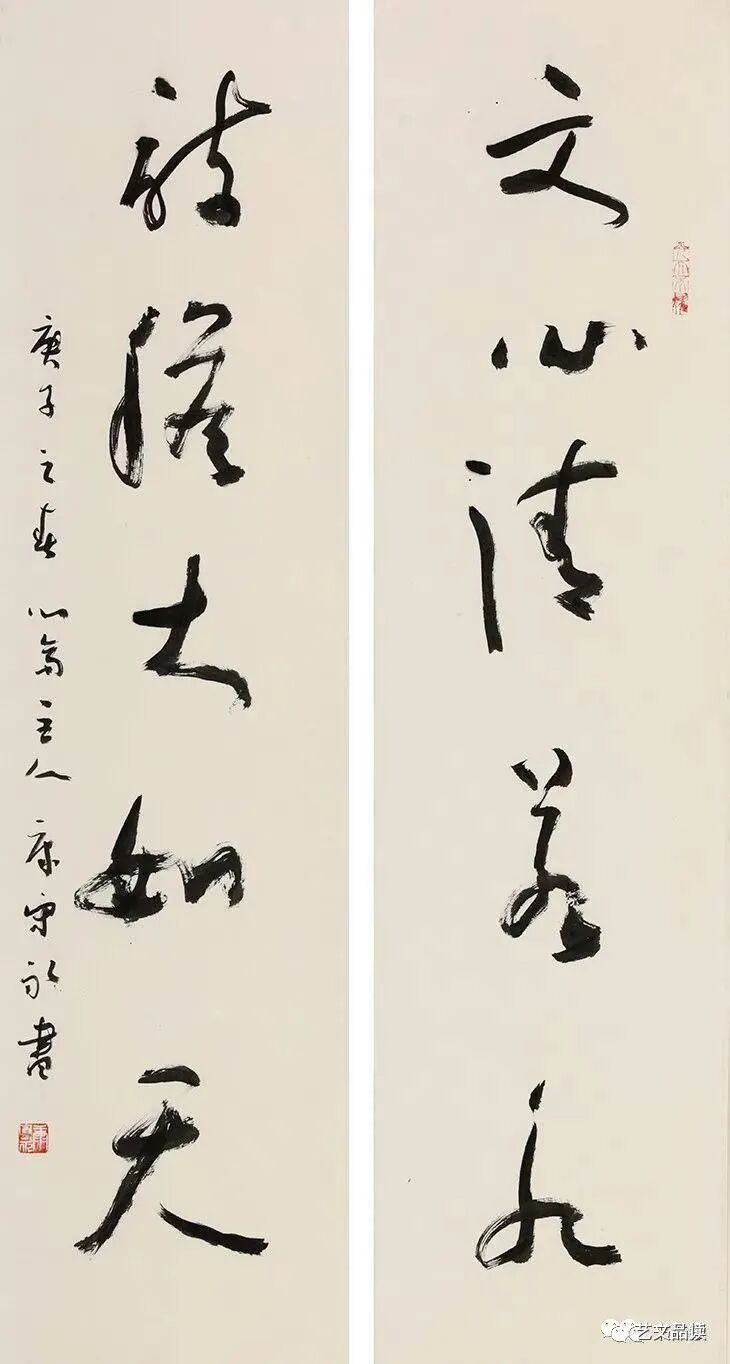 文心清若水
詩膽大如天
庚子之春 心斋主人 康守永書
艺文品读